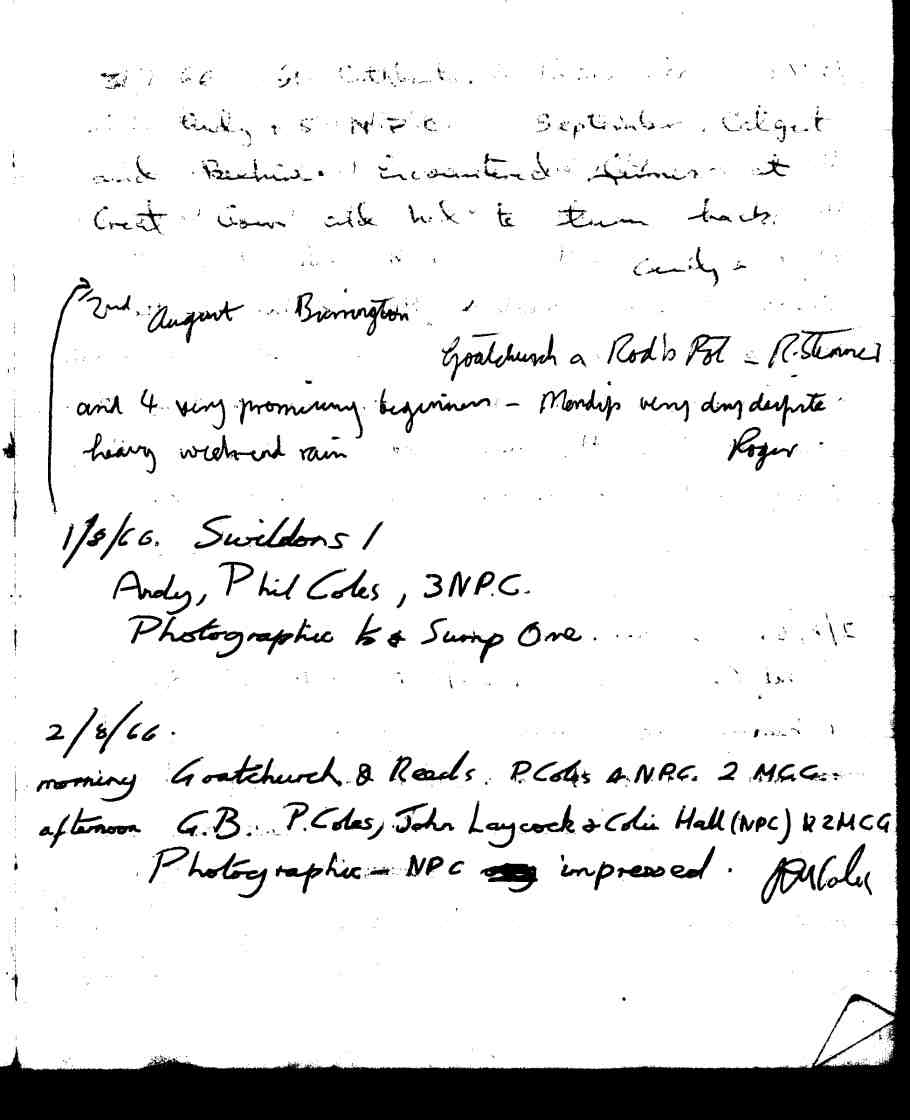 66 St Cuthbert
Andy + 5 N.P.C. September, Catgut
and Beehive. Encountered at
Great had to turn back.
Andy
2nd. August Burrington
Goatchurch & Rod's Pot - R. Stenner
and 4 very promising beginners - Mendip very dry despite
heavy weekend rain
Roger
1/8/66. Swildons 1
Andy, Phil Coles, 3 N.P.C.
Photographic to Sump One.
2/8/66.
morning Goatchurch & Reads. P. Coles 4 N.P.C. 2 M.C.G.
afternoon G.B. P. Coles, John Laycock & Colin Hall (NPC) & 2 MCG
Photographic - NPC impressed.